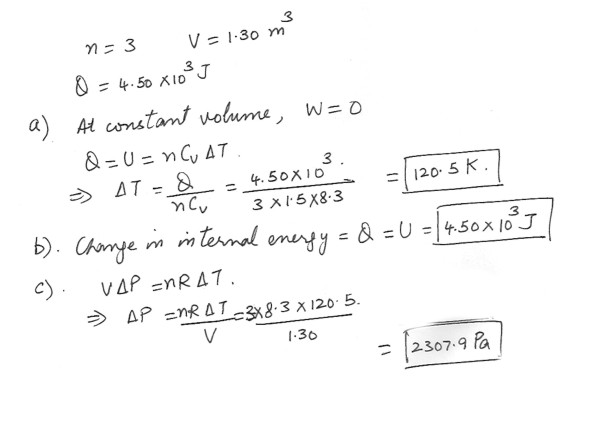 n = 3 V = 1.30 m³
Q = 4.50 x10³ J
a) At constant volume, W = 0
Q = U = n Cv ΔT.
⇒ ΔT = Q/nCv = 4.50x10³./3 x 1.5 x 8.3 = 120.5 K.
b). Change in internal energy = Q = U = 4.50 x 10³ J
c). VΔP = nRΔT.
⇒ ΔP = nRΔT/V = 3x8.3 x 120.5./1.30
= 2307.9 Pa